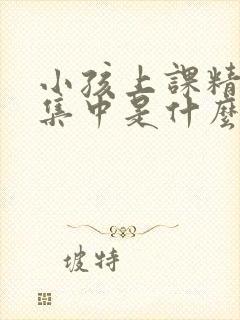 小孩上課精
集中是什麼
坡特